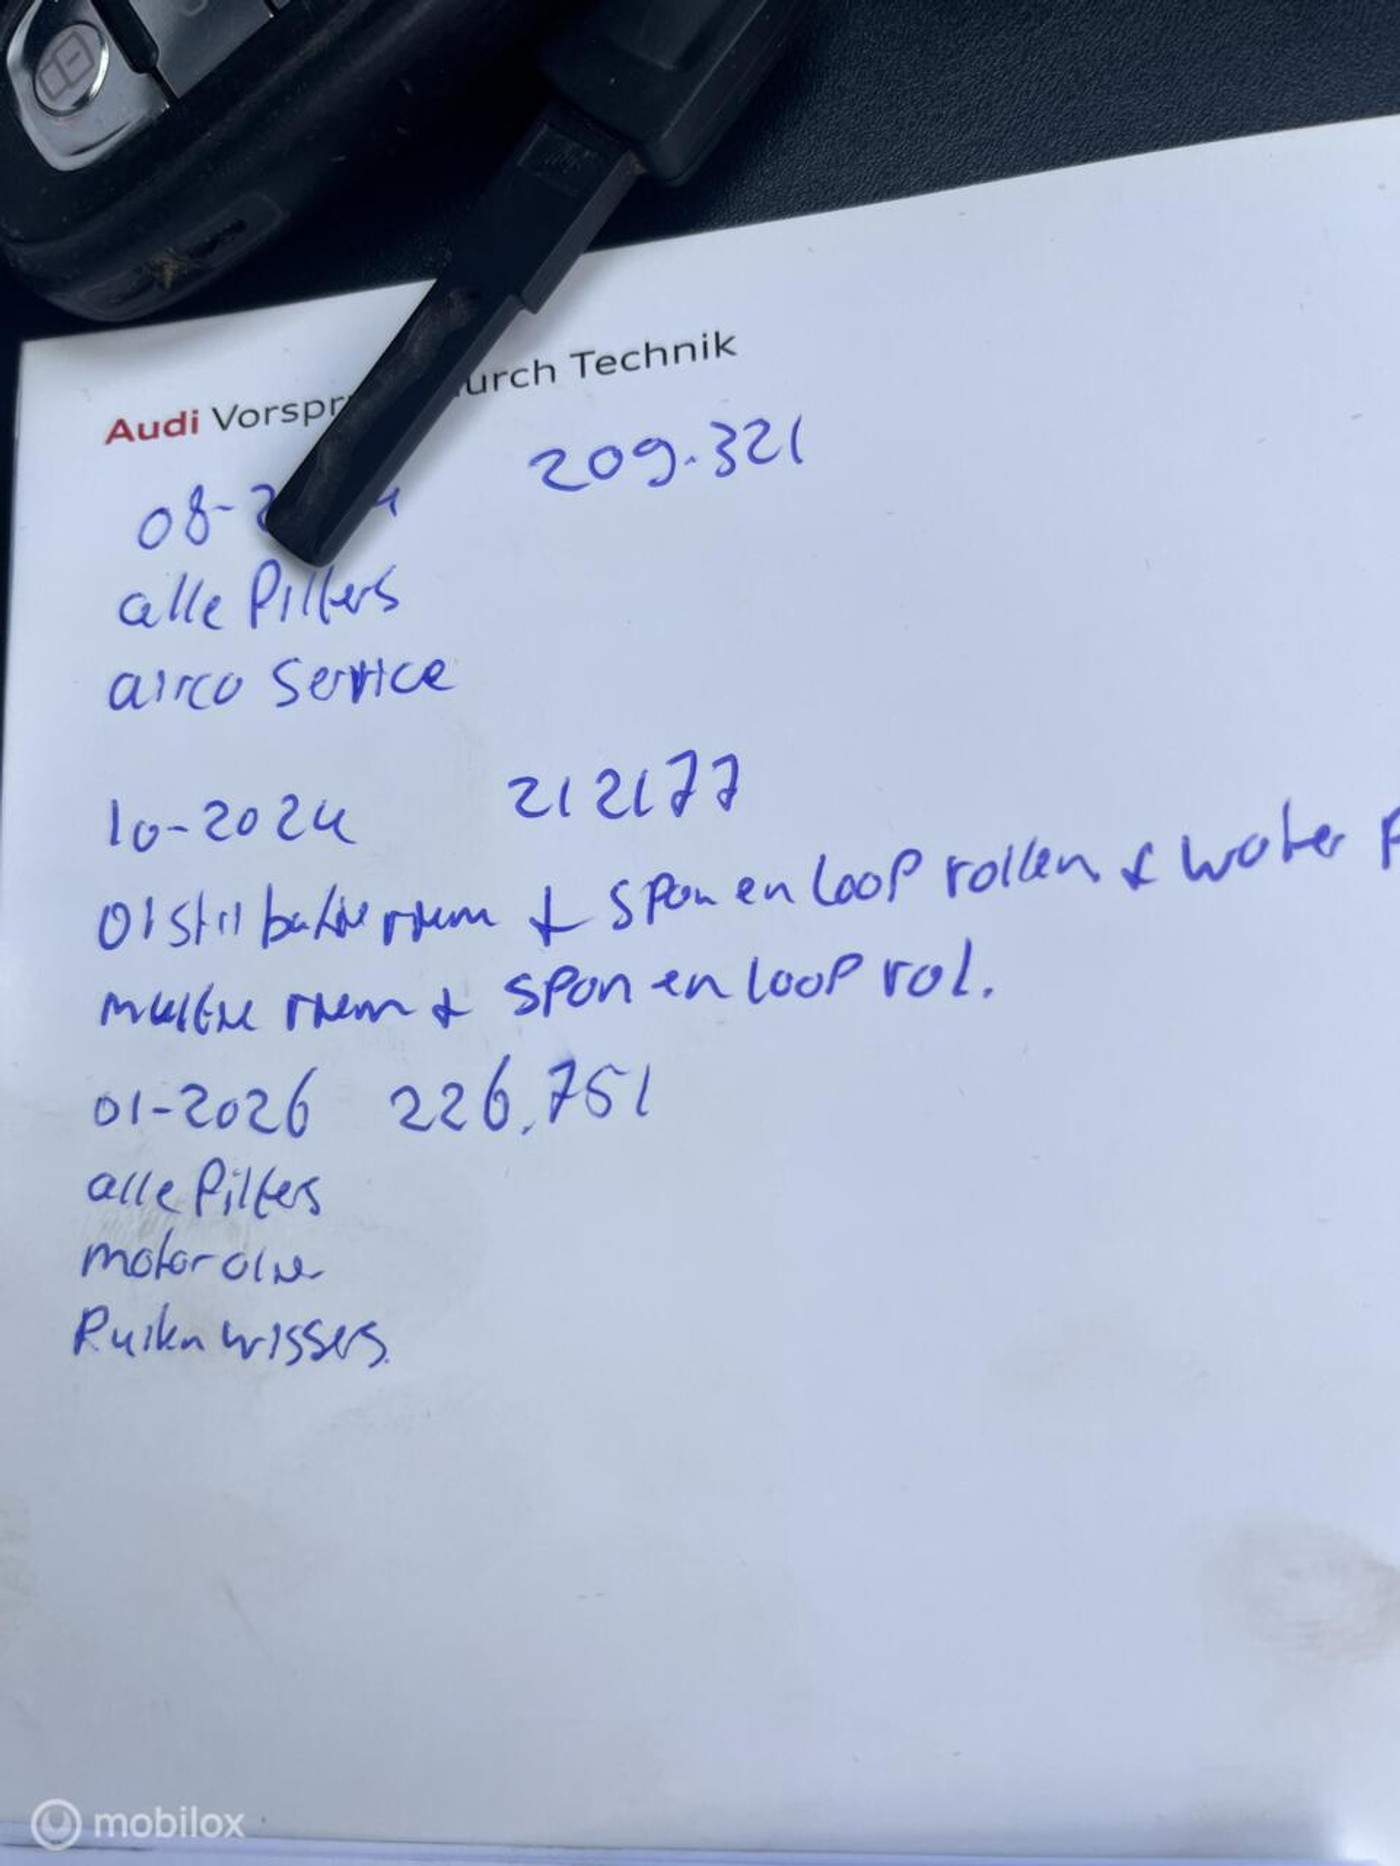 Audi Vorspr urch Technik
08-2 4 209.321
alle Filters
airco Service
10-2024 212177
Distributie riem + span en loop rollen + water p
multie riem + span en loop rol.
01-2026 226.751
alle Filters
motor olie
Ruiten wissers.
mobilox